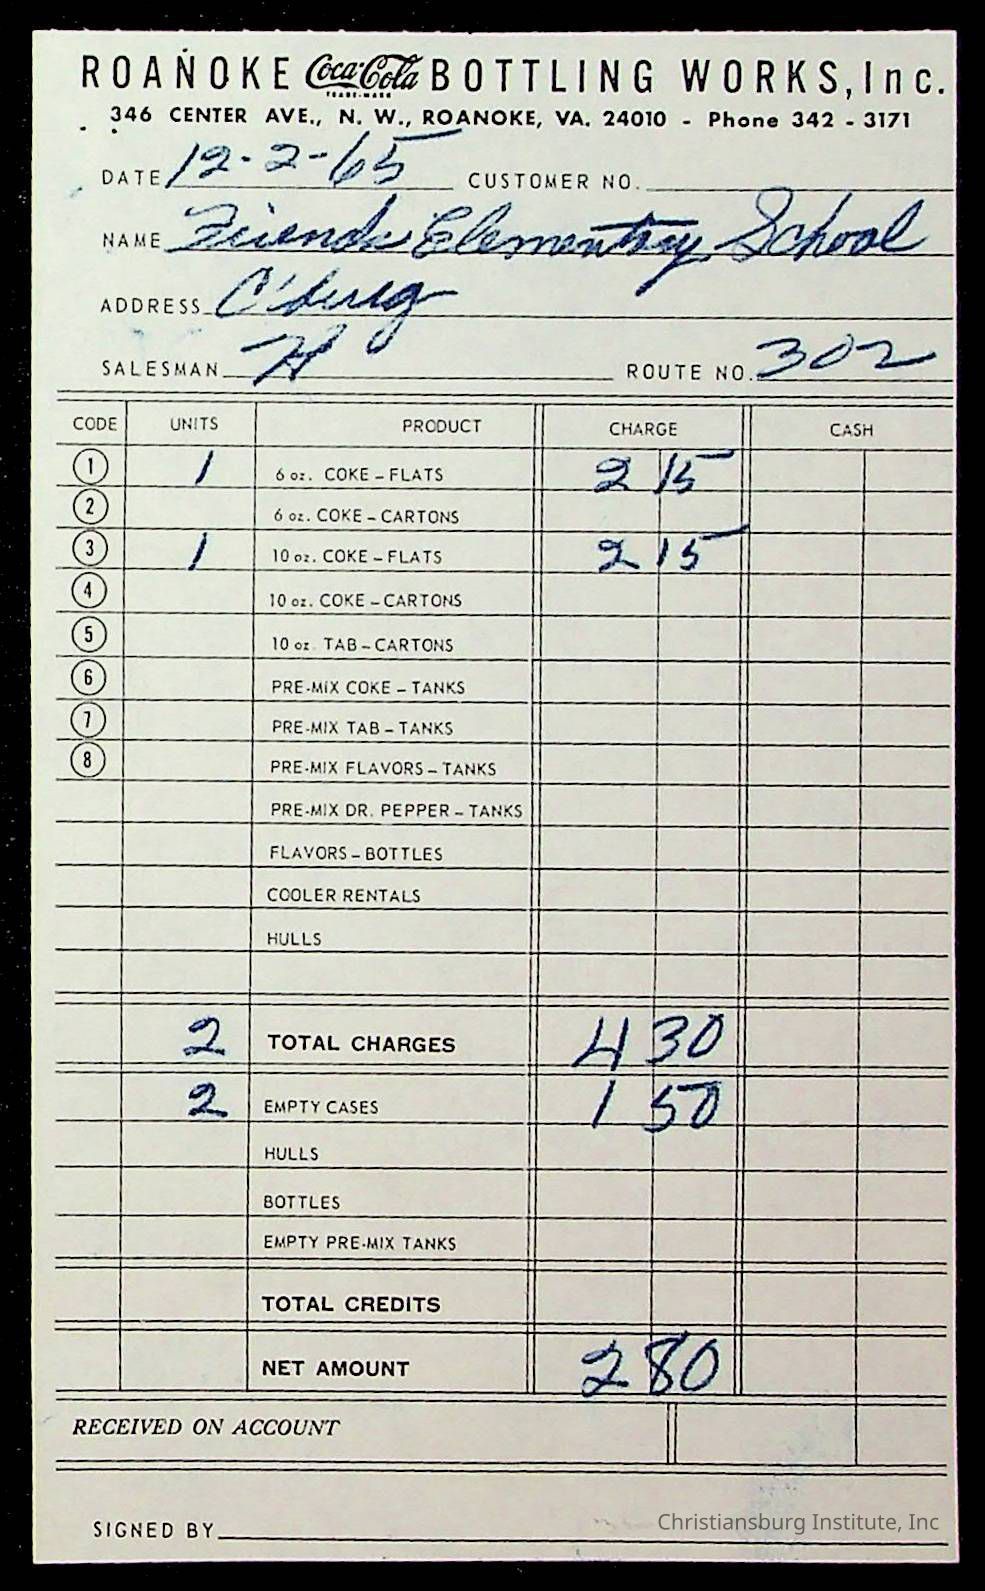 ROANOKE Coca-Cola BOTTLING WORKS, Inc.
TRADE-MARK
346 CENTER AVE., N. W., ROANOKE, VA. 24010 - Phone 342 - 3171
DATE 12-2-65 CUSTOMER NO.
NAME Friends Elementary School
ADDRESS C'burg
SALESMAN H ROUTE NO. 302
CODE UNITS PRODUCT CHARGE CASH
1 1 6 oz. COKE - FLATS 2 15
2 6 oz. COKE - CARTONS
3 1 10 oz. COKE - FLATS 2 15
4 10 oz. COKE - CARTONS
5 10 oz. TAB - CARTONS
6 PRE-MIX COKE - TANKS
7 PRE-MIX TAB - TANKS
8 PRE-MIX FLAVORS - TANKS
PRE-MIX DR. PEPPER - TANKS
FLAVORS - BOTTLES
COOLER RENTALS
HULLS
2 TOTAL CHARGES 4 30
2 EMPTY CASES 1 50
HULLS
BOTTLES
EMPTY PRE-MIX TANKS
TOTAL CREDITS
NET AMOUNT 2 80
RECEIVED ON ACCOUNT
SIGNED BY
Christiansburg Institute, Inc